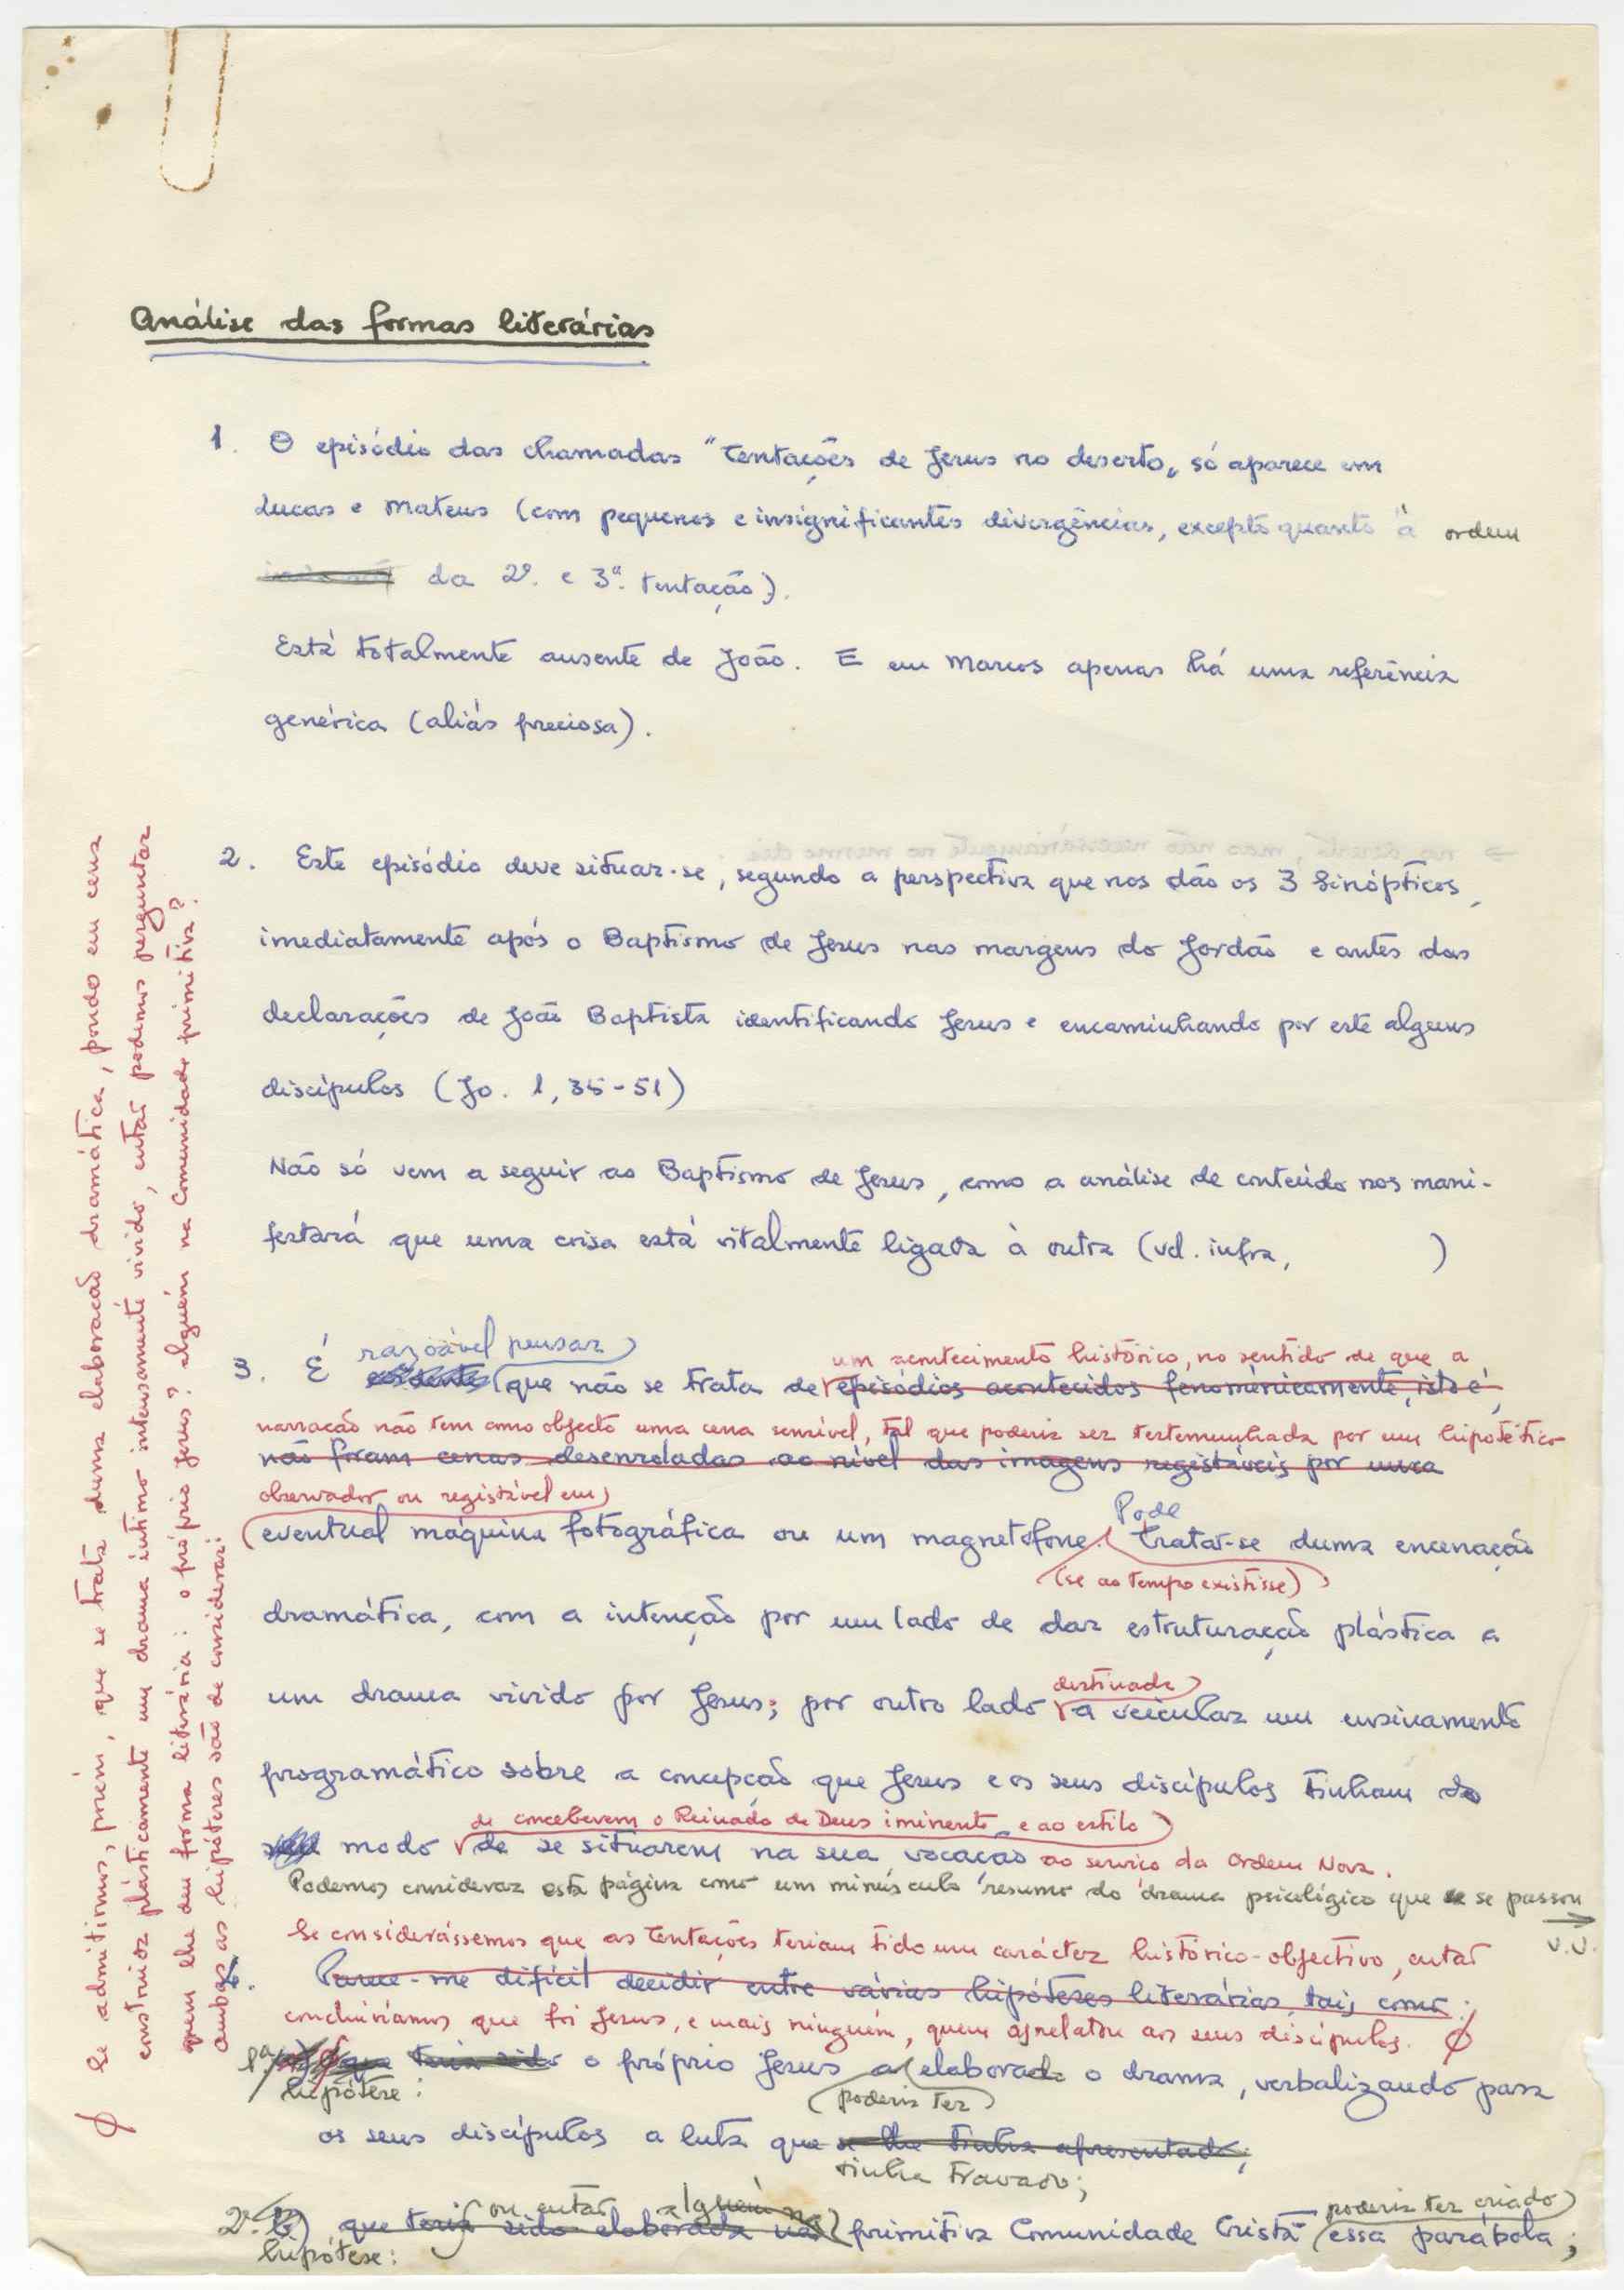 Análise das formas literárias
1. O episódio das chamadas "Tentações de Jesus no deserto„ só aparece em
Lucas e Mateus (com pequenas e insignificantes divergências, excepto quanto à ordem
da 2ª. e 3ª. tentação).
Está totalmente ausente de João. E em Marcos apenas há uma referência
genérica (aliás preciosa).
→ no deserto, mas não necessàriamente no mesmo dia
2. Este episódio deve situar-se, segundo a perspectiva que nos dão os 3 Sinópticos,
imediatamente após o Baptismo de Jesus nas margens do Jordão e antes das
declarações de João Baptista identificando Jesus e encaminhando por este alguns
discípulos (Jo. 1, 35-51)
Não só vem a seguir ao Baptismo de Jesus, como a análise de conteúdo nos mani-
festará que uma coisa está vitalmente ligada à outra (vd. infra, )
razoável pensar
um acontecimento histórico, no sentido de que a
3. É evidente que não se trata de episódios acontecidos fenomènicamente, isto é,
narração não tem como objecto uma cena sensível, tal que poderia ser testemunhada por um hipotético
não foram cenas desenroladas ao nível das imagens registáveis por uma
observador ou registável em
Pode
eventual máquina fotográfica ou um magnetofone. tratar-se duma encenação
(se ao tempo existisse)
dramática, com a intenção por um lado de dar estruturação plástica a
destinada
um drama vivido por Jesus; por outro lado a veicular um ensinamento
programático sobre a concepção que Jesus e os seus discípulos tinham do
de conceberem o Reinado de Deus iminente e ao estilo
seu modo de se situarem na sua vocação ao serviço da Ordem Nova.
Podemos considerar esta página como um minúsculo resumo do drama psicológico que se passou →
v.v.
Se considerássemos que as Tentações teriam tido um carácter histórico-objectivo, então
Parece-me difícil decidir entre várias hipóteses literárias, tais como:
concluiríamos que foi Jesus, e mais ninguém, quem as relatou aos seus discípulos. ∅
1ª que teria sido o próprio Jesus a elaborado o drama, verbalizando para
hipótese: poderia ter
os seus discípulos a luta que se lhe tinha apresentado;
tinha travado;
ou então alguém na poderia ter criado
2ª. b) que teria sido elaborada na primitiva Comunidade Cristã essa parábola;
hipótese:
∅ Se admitirmos, porém, que se trata duma elaboração dramática, pondo em cena
construída plàsticamente um drama íntimo intensamente vivido, então podemos perguntar
quem lhe deu forma literária: o próprio Jesus? alguém na Comunidade primitiva?
ambas as hipóteses são de considerar: